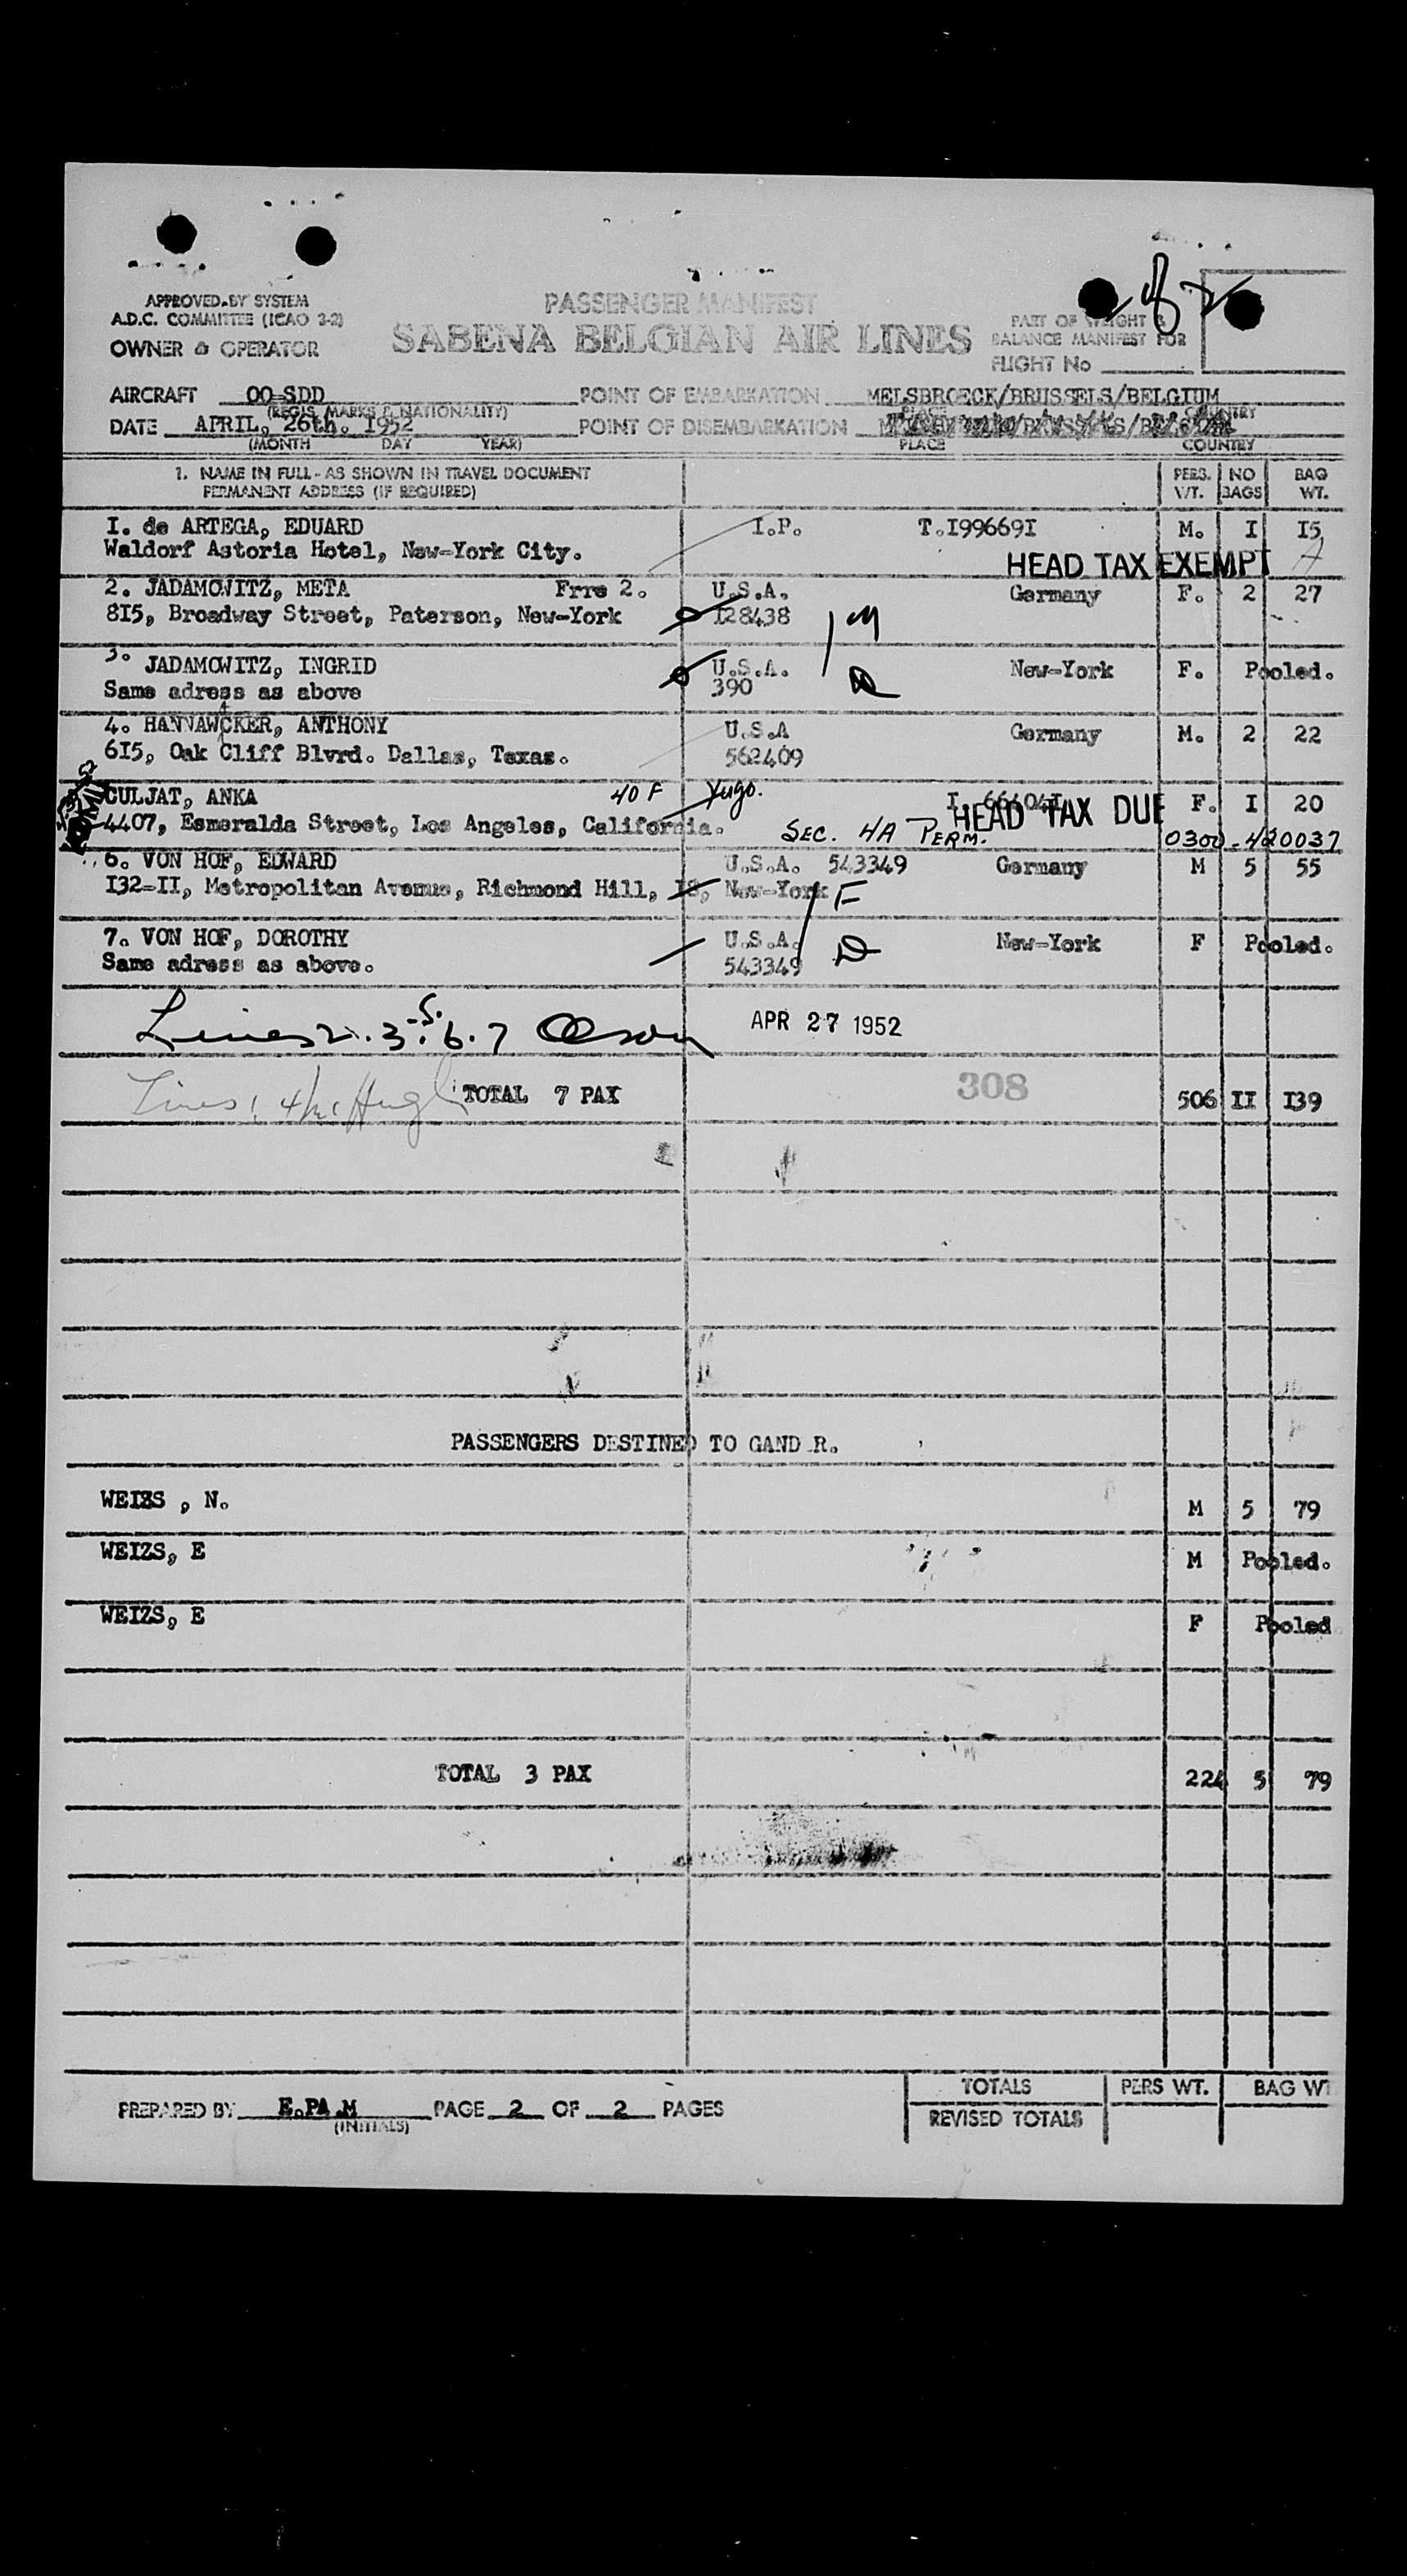 APPROVED BY SYSTEM
A.D.C. COMMITTEE (ICAO 3-2)
OWNER & OPERATOR
PASSENGER MANIFEST
SABENA BELGIAN AIR LINES
PART OF WEIGHT &
BALANCE MANIFEST FOR
FLIGHT No
AIRCRAFT OO-SDD POINT OF EMBARKATION MELSBROECK/BRUSSELS/BELGIUM
(REGIS. MARKS & NATIONALITY) PLACE COUNTRY
DATE APRIL, 26th. I952 POINT OF DISEMBARKATION
(MONTH DAY YEAR) PLACE COUNTRY
1. NAME IN FULL - AS SHOWN IN TRAVEL DOCUMENT PERS. NO BAG
PERMANENT ADDRESS (IF REQUIRED) WT. BAGS WT.
I. de ARTEGA, EDUARD I.P. T.I99669I M. I I5
Waldorf Astoria Hotel, New-York City.
HEAD TAX EXEMPT
2. JADAMOWITZ, META Frre 2. U.S.A. Germany F. 2 27
8I5, Broadway Street, Paterson, New-York I28438 M
3. JADAMOWITZ, INGRID U.S.A. New-York F. Pooled.
Same adress as above 390 D
4. HANNAWCKER, ANTHONY U.S.A Germany M. 2 22
6I5, Oak Cliff Blvrd. Dallas, Texas. 562409
CULJAT, ANKA 40 F Yugo. I. 66404I F. I 20
HEAD TAX DUE
4407, Esmeralda Street, Los Angeles, California. SEC. 4A PERM. 0300-420037
6. VON HOF, EDWARD U.S.A. 543349 Germany M 5 55
I32-II, Metropolitan Avenue, Richmond Hill, I8, New-York F
7. VON HOF, DOROTHY U.S.A. New-York F Pooled.
Same adress as above. 543349 D
Lines 2.3.-5.6.7 Olson APR 27 1952
Lines 1, 4 TOTAL 7 PAX 308 506 II I39
PASSENGERS DESTINED TO GAND R.
WEIZS , N. M 5 79
WEIZS, E M Pooled.
WEIZS, E F Pooled
TOTAL 3 PAX 224 5 79
TOTALS PERS WT. BAG WT
PREPARED BY E.PA.M PAGE 2 OF 2 PAGES
(INITIALS)
REVISED TOTALS